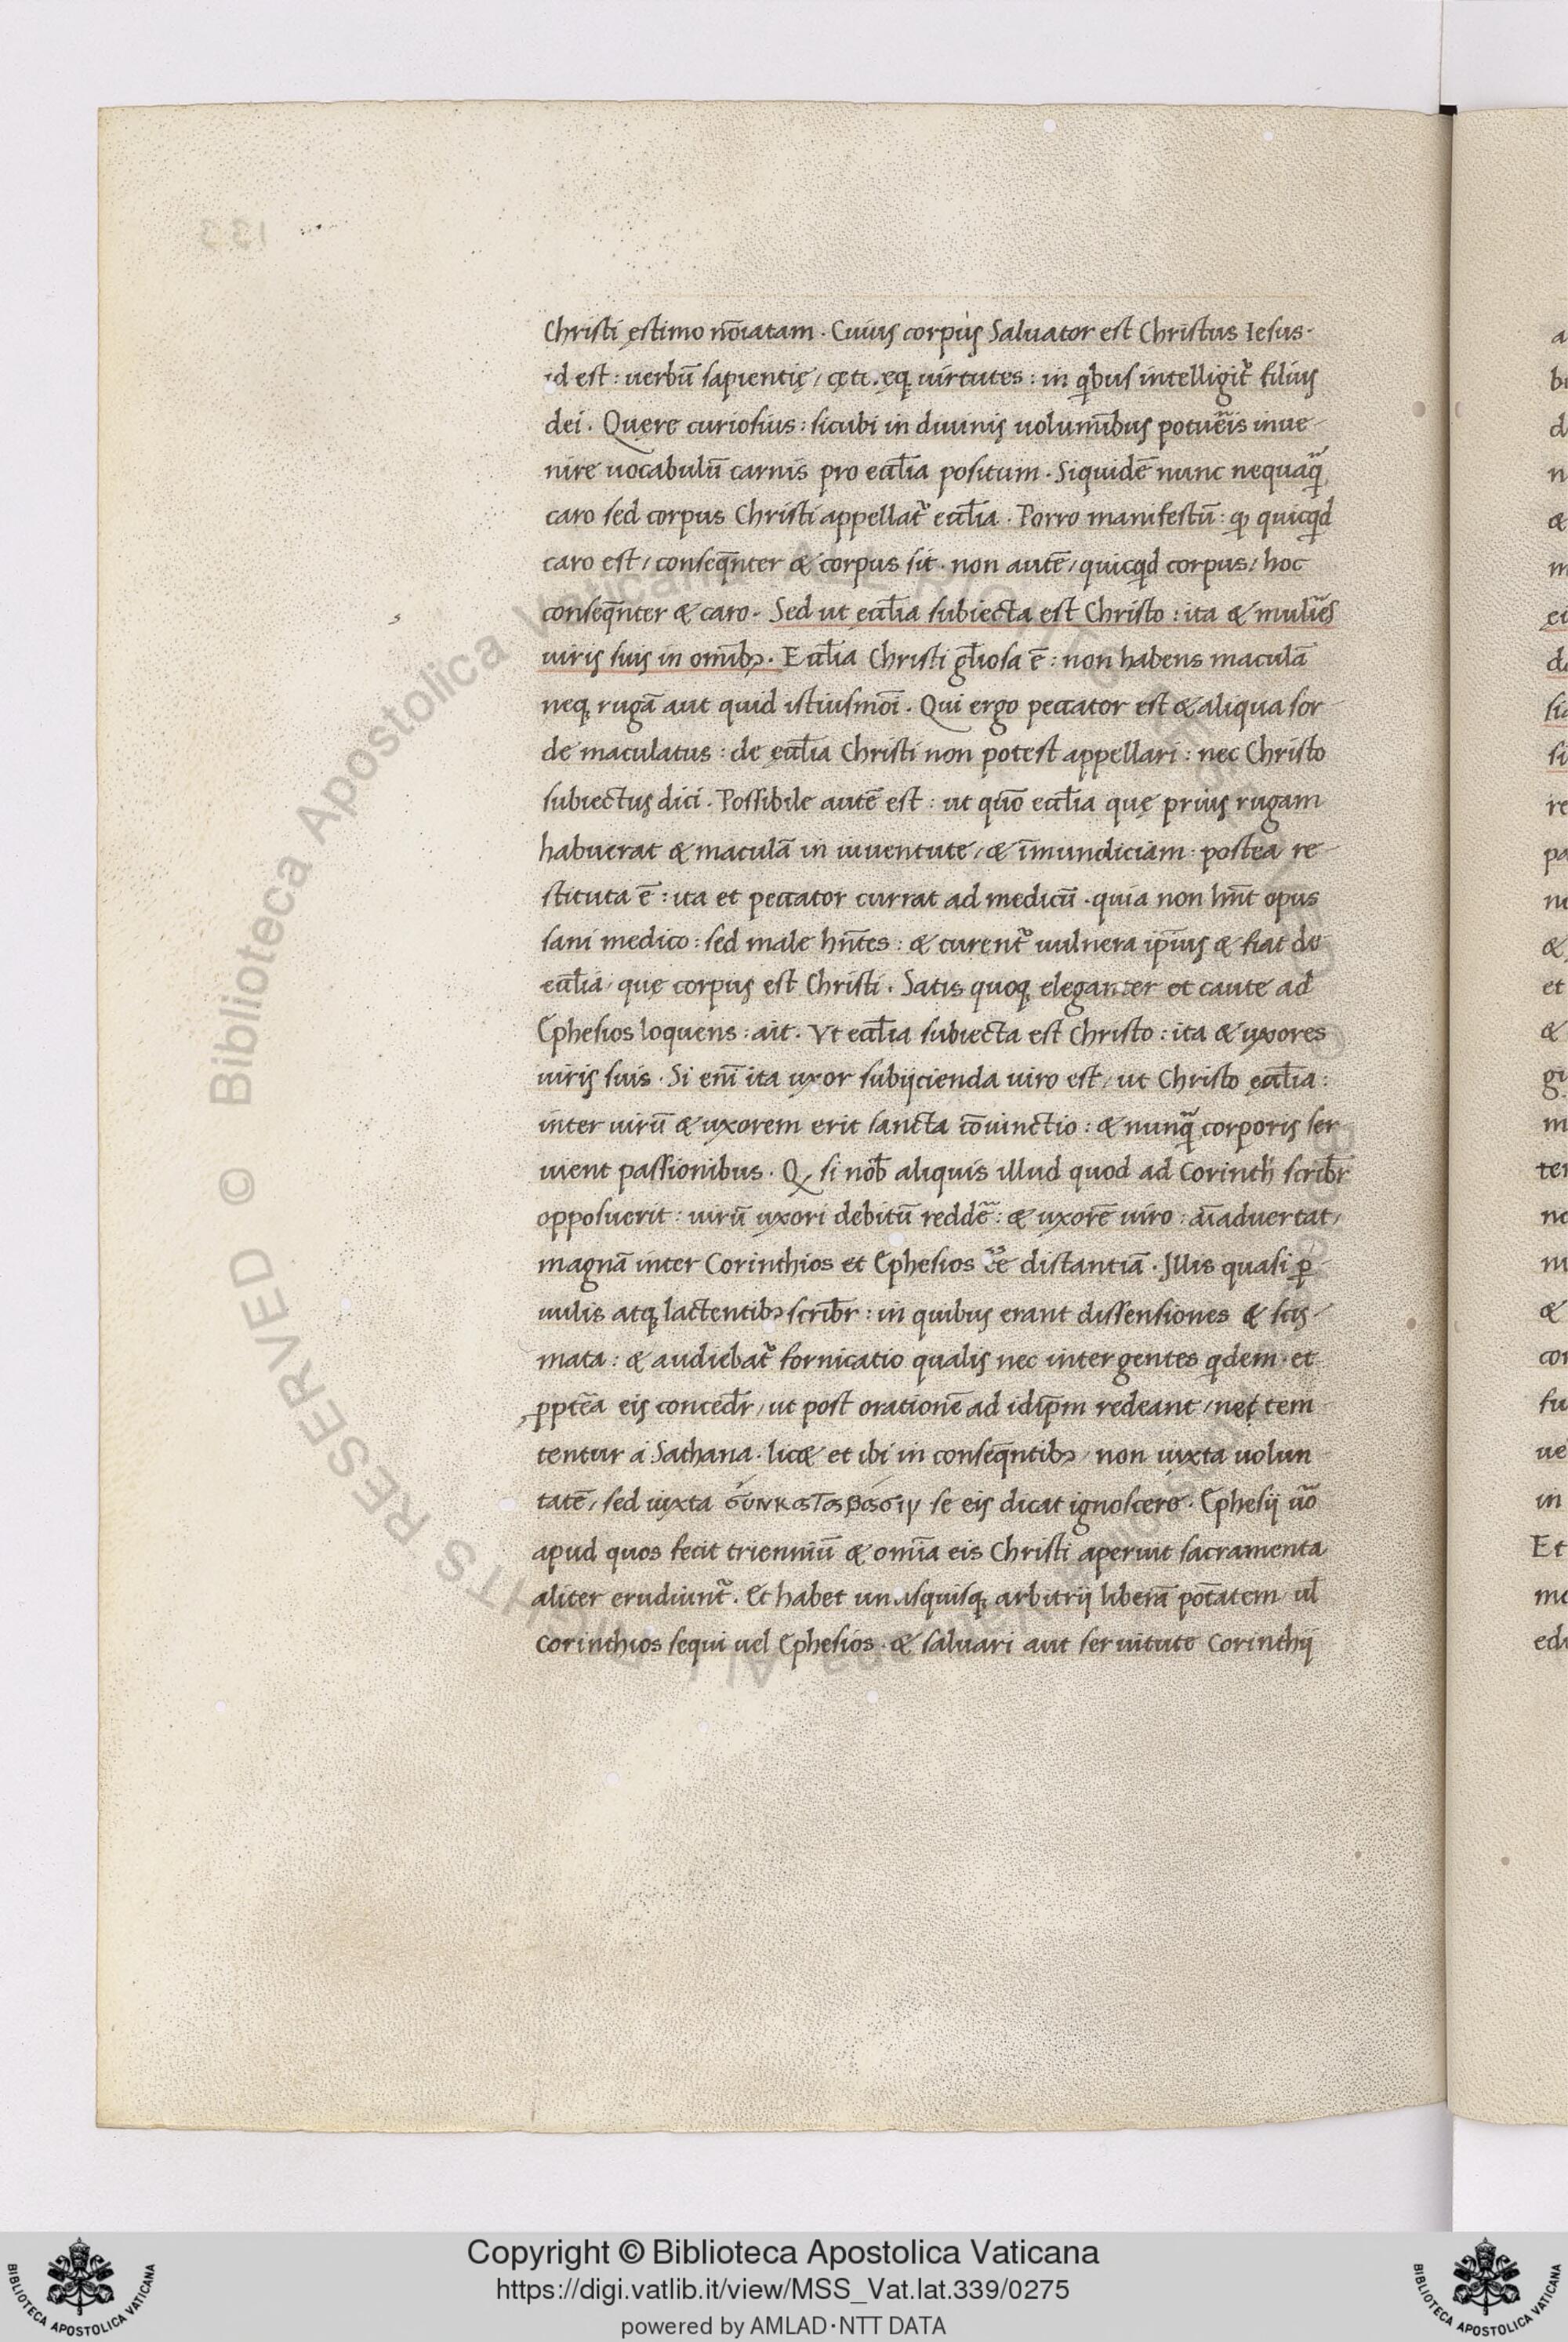 Christi ęstimo nōiatam. Cuius corpus Saluator est Christus Iesus.
id est: uerbū sapientię, cęteręq; uirtutes: in qͥbus intelligit᷑ filius
dei. Quęre curiosius: sicubi in diuinis uolumībus potuẽis inue
nire uocabulū carnis pro eccl̄ia positum. Siquidē nunc nequaq̃
caro sed corpus Christi appellat᷑ eccl̄ia. Porro manifestū: ꝙ quicqͥd
caro est, conseq̄nter & corpus sit. non autē, quicqͥd corpus, hoc
conseq̄nter & caro. Sed ut eccl̄ia subiecta est Christo: ita & mulie͂s
uiris suis in omībꝫ. Eccl̄ia Christi gl̄iosa ē: non habens maculā
neq; rugā aut quid istiusmōi. Qui ergo peccator est & aliqua sor
de maculatus: de eccl̄ia Christi non potest appellari: nec Christo
subiectus dici. Possibile autē est: ut quō eccl̄ia quę prius rugam
habuerat & maculā in iuuentute, & īmundiciam postea re
stituta ē: ita et peccator currat ad medicū. quia non hn̄t opus
sani medico: sed male hn̄tes: & curent᷑ uulnera ip̄ius & fiat de
eccl̄ia, quę corpus est Christi. Satis quoq; eleganter et caute ad
Ephesios loquens: ait. Vt eccl̄ia subiecta est Christo: ita & uxores
uiris suis. Si enī ita uxor subijcienda uiro est, ut Christo eccl̄ia:
inter uirū & uxorem erit sancta cōiunctio: & nunq̃ corporis ser
uient passionibus. Qꝫ si nob̄ aliquis illud quod ad Corinth̄ scribr̄
opposuerit: uirū uxori debitū redde͂: & uxorē uiro: aīaduertat,
magnā inter Corinthios et Ephesios e͂e distantiā. Illis quasi ꝑ
uulis atq; lactentibꝫ scribr̄: in quibus erant dissensiones & scis
mata: & audiebat᷑ fornicatio qualis nec inter gentes qͥdem. et
ꝓpte͂a eis concedr̄, ut post orationē ad idip̄m redeant, ne tem
tentur a Sathana. licet et ibi in conseq̄ntibꝫ, non iuxta uolun
tatē, sed iuxta συνκαταβασιν se eis dicat ignoscere. Ephesij uo͂
apud quos fecit trienniū & omīa eis Christi aperuit sacramenta
aliter erudiunt᷑. Et habet unusquisq; arbitrij liberā pōtatem, ul̄
Corinthios sequi uel Ephesios. & saluari aut seruitute Corinthij
Copyright © Biblioteca Apostolica Vaticana
https://digi.vatlib.it/view/MSS_Vat.lat.339/0275
powered by AMLAD·NTT DATA